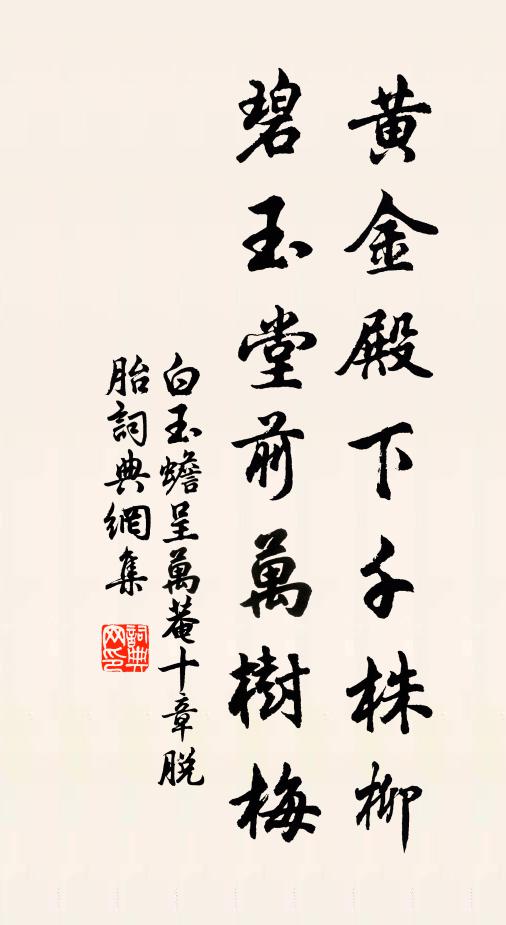 黃金殿下千株柳
碧玉堂前萬樹梅
白玉蟾呈萬菴十章脫
胎詞典網集
詞典網印